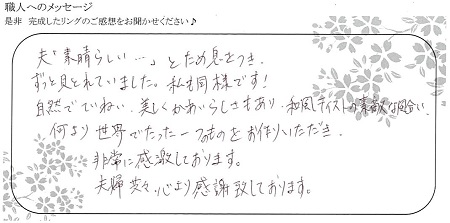 職人へのメッセージ
是非 完成したリングのご感想をお聞かせください♪
夫「素晴らしい…」とため息をつき、
ずっと見とれていました。私も同様です!
自然でていねい、美しくかわいらしさもあり、和風テイストの素敵な風合い、
何より世界でたった一つのものをお作りいただき、
非常に感激しております。
夫婦共々、心より感謝致しております。